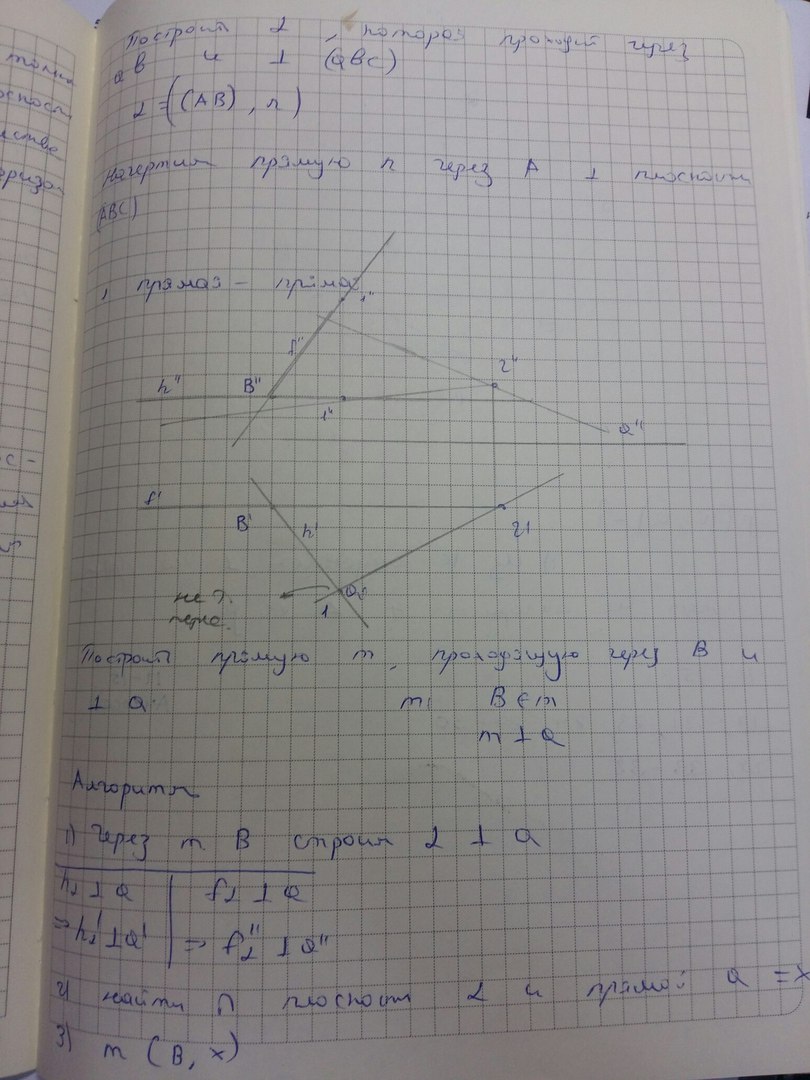 Построить 2, которая проходит через
ab и ⊥ (abc)
2 = ((AB), n)
Начертим прямую n через A ⊥ плоскости
(ABC)
, прямая - прямая
1"
f"
2"
h"
B"
1"
a"
f'
B'
h'
2'
не д.
a'
1
Построить прямую m, проходящую через B и
⊥ a m: B ∈ m
m ⊥ a
Алгоритм
1) Через т B строим 2 ⊥ a
h2 ⊥ a | f2 ⊥ a
=> h2' ⊥ a' | => f2" ⊥ a"
2) найти ∩ плоскости 2 и прямой a = x
3) m (B, x)